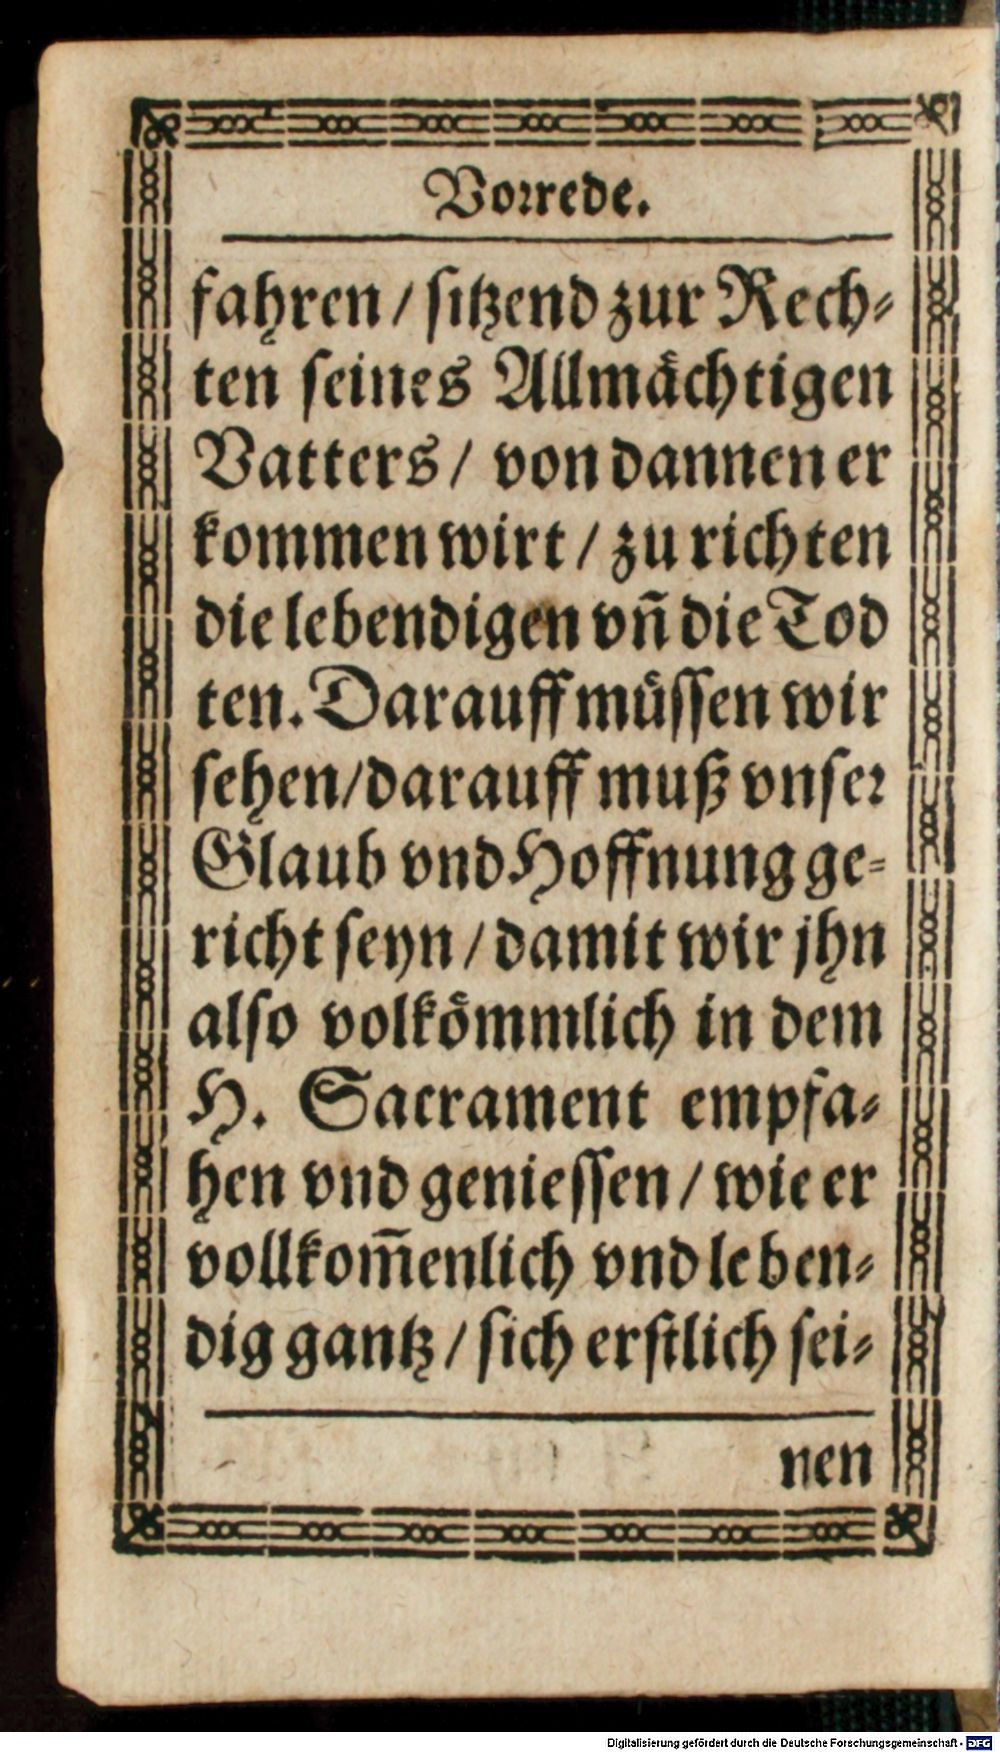 Vorrede.
fahren / sitzend zur Rech-
ten seines Allmächtigen
Vatters / von dannen er
kommen wirt / zu richten
die lebendigen vñ die Tod
ten. Darauff müssen wir
sehen / darauff muß vnser
Glaub vnd Hoffnung ge-
richt seyn / damit wir jhn
also volkömmlich in dem
H. Sacrament empfa-
hen vnd geniessen / wie er
vollkom̅enlich vnd leben-
dig gantz / sich erstlich sei-
nen
Digitalisierung gefördert durch die Deutsche Forschungsgemeinschaft - DFG